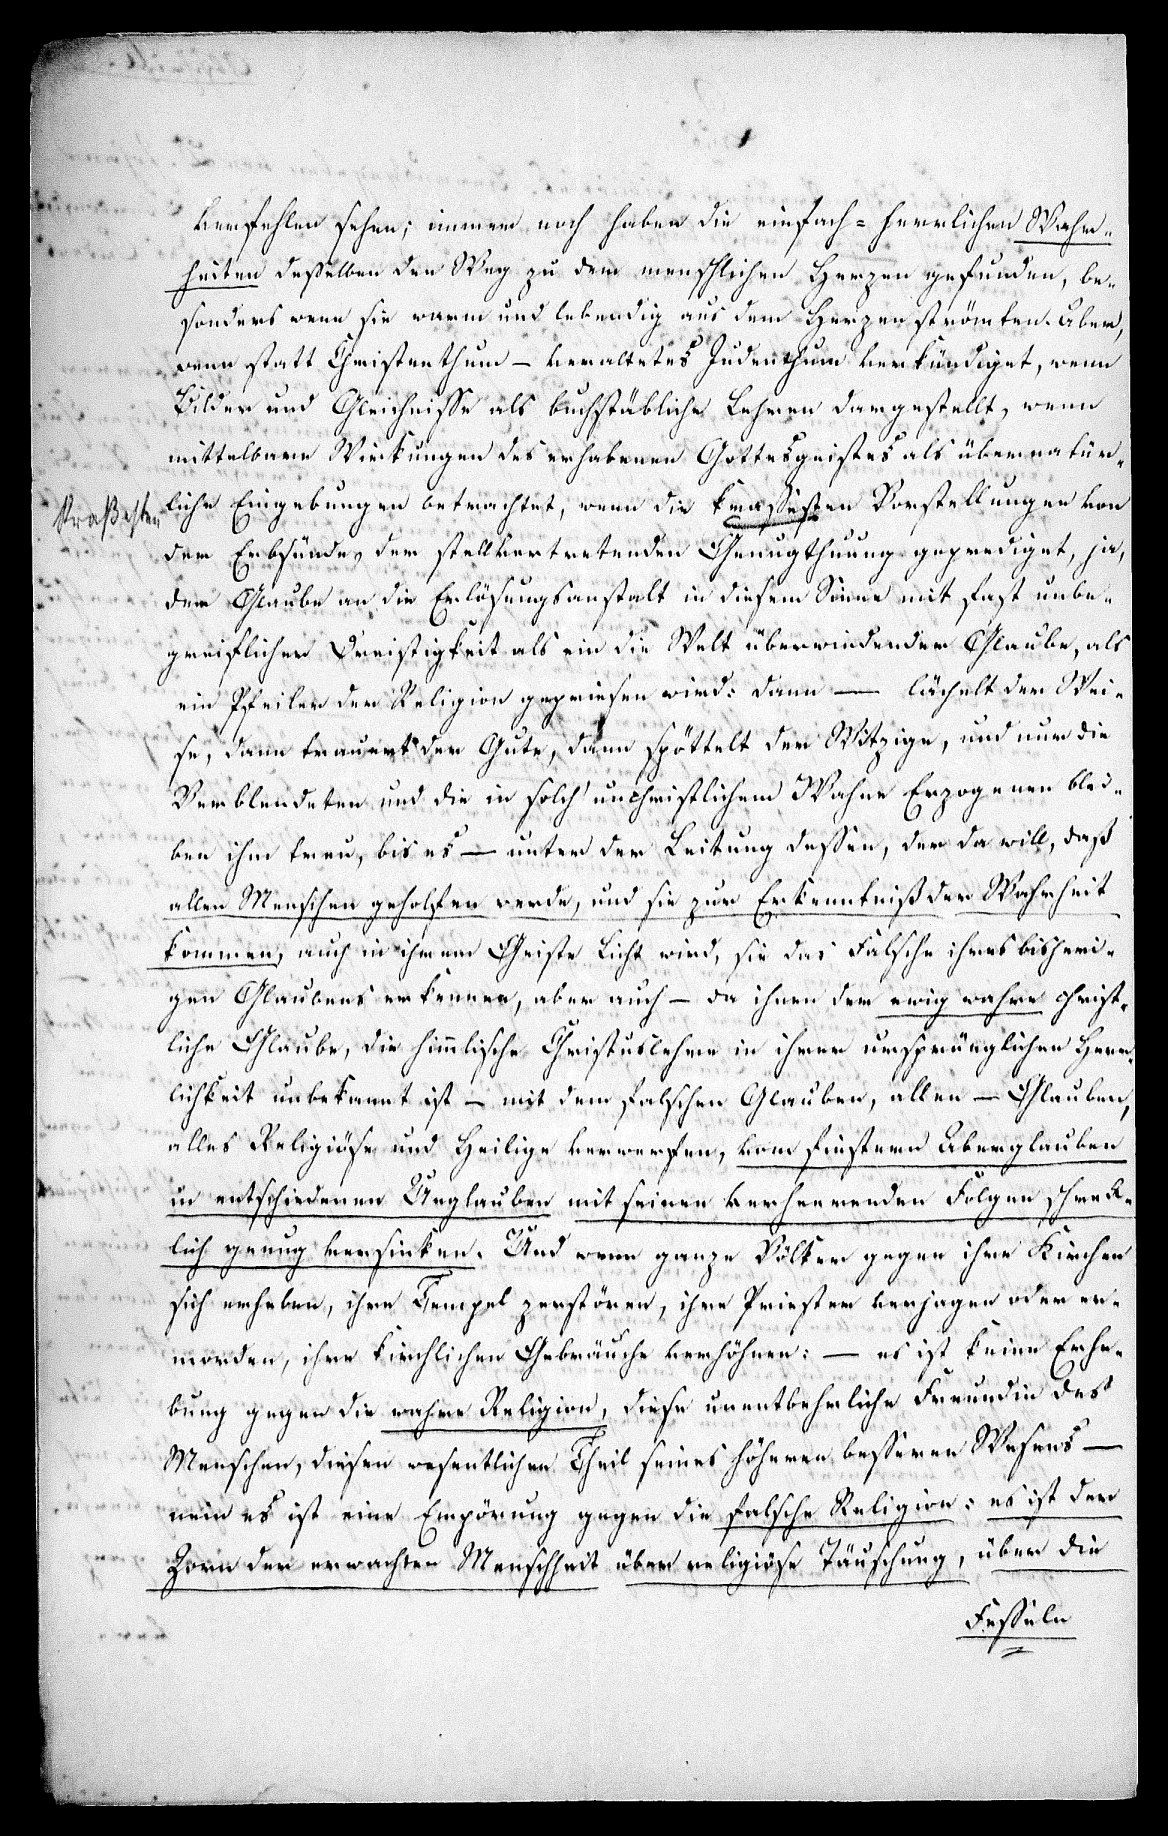 verfehlen sehen; immer noch haben die einfach-herrlichen Wahr-
heiten deßelben den Weg zu dem menschlichen Herzen gefunden, be-
sonders wenn sie warm und lebendig aus dem Herzen strömten. Aber,
wenn statt Christenthum – veraltetes Judenthum verkündiget, wenn
Bilder und Gleichnisse als buchstäbliche Lehren dargestellt, wenn
mittelbare Wirkungen des erhabenen Gottesgeistes als übernatür-
liche Eingebungen betrachtet, wenn die krassesten Vorstellungen von
kraßesten
der Erbsünde, der stellvertretenden Genugthuung geprediget, ja,
der Glaube an die Erlösungsanstalt in diesem Sinne mit fast unbe-
greiflicher Dreistigkeit als ein die Welt überwindender Glaube, als
ein Pfeiler der Religion gepriesen wird: dann — lächelt der Wei-
se, dann trauert der Gute, dann spöttelt der Witzige, und nur die
Verblendeten und die in solch' unchristlichem Wahne Erzogenen blei-
ben ihm treu, bis es — unter der Leitung dessen, der da will, daß
allen Menschen geholfen werde, und sie zur Erkenntniß der Wahrheit
kommen, auch in ihrem Geiste Licht wird, sie das Falsche ihres bisheri-
gen Glaubens erkennen, aber auch – da ihnen der ewig wahre christ-
liche Glaube, die himlische Christuslehre in ihrer ursprünglichen Herr-
lichkeit unbekannt ist – mit dem falschen Glauben, allen – Glauben,
alles Religiöse und Heilige verwerfen, vom finstern Aberglauben
in entschiedenen Unglauben mit seinen verheerenden Folgen schreck-
lich genug versinken. Und wenn ganze Völker gegen ihre Kirchen
sich erheben, ihre Tempel zerstören, ihre Priester verjagen oder er-
morden, ihre kirchlichen Gebräuche verhöhnen: — es ist keine Erhe-
bung gegen die wahre Religion, diese unentbehrliche Freundin des
Menschen, diesen wesentlichen Theil seines höheren besseren Wesens —
nein es ist eine Empörung gegen die falsche Religion; es ist der
Zorn der erwachten Menschheit über religiöse Täuschung, über die
Fesseln